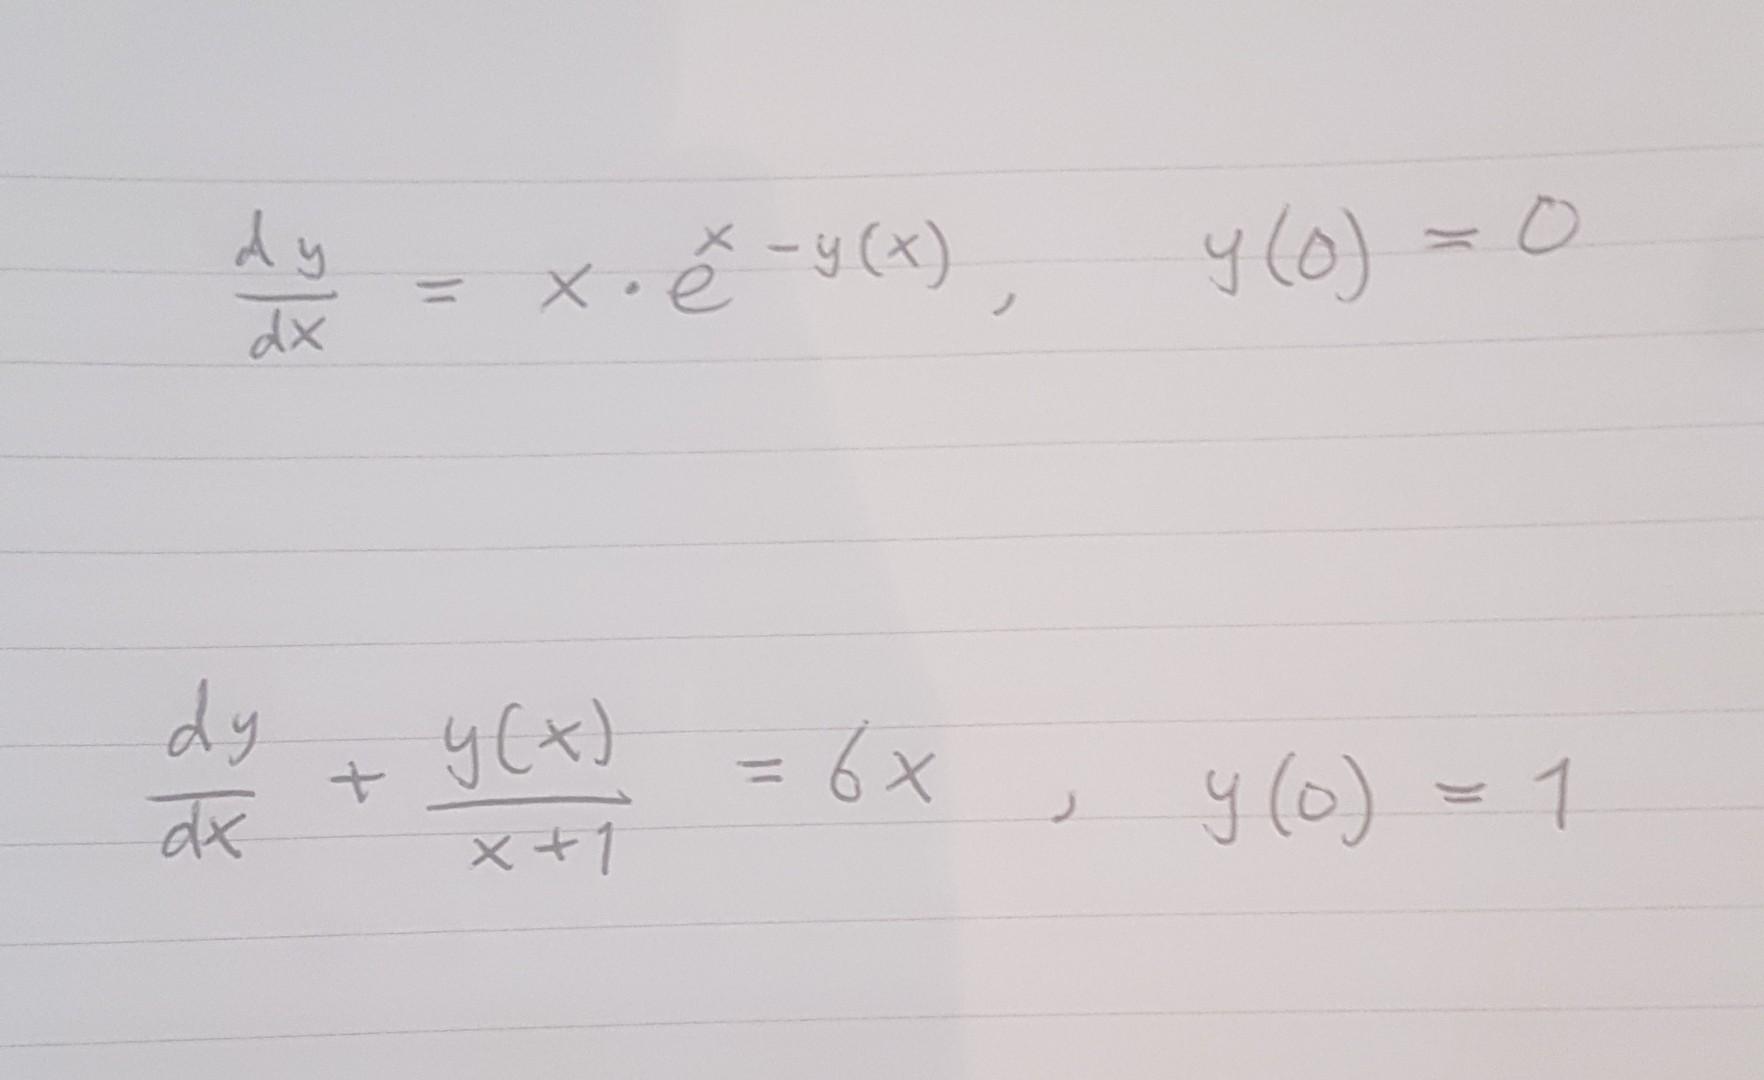 dy/dx = x · e^(x - y(x)), y(0) = 0
dy/dx + y(x)/(x+1) = 6x , y(0) = 1